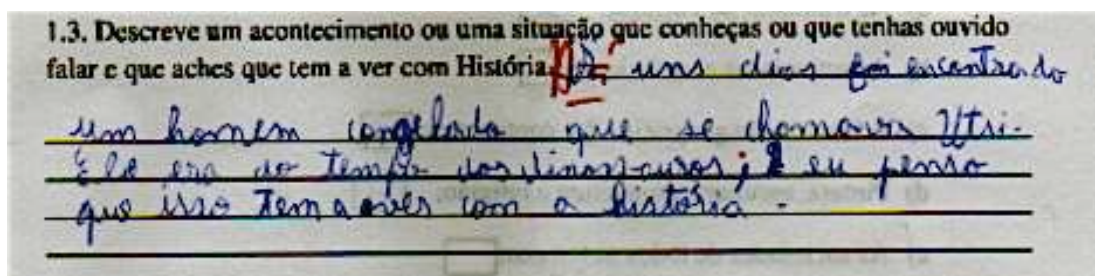 1.3. Descreve um acontecimento ou uma situação que conheças ou que tenhas ouvido
falar e que aches que tem a ver com História. Há uns dias foi encontrado
um homem congelado que se chamava Utsi.
Ele era do tempo dos dinossauros; e eu penso
que isso tem a ver com a história.